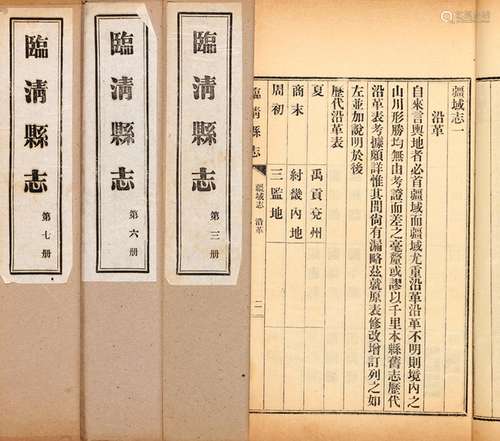 臨淸縣志
第三册
臨淸縣志
第六册
臨淸縣志
第七册
疆域志一
沿革
自來言輿地者必首疆域而疆域尤重沿革沿革不明則境內之
山川形勝均無由考證而差之毫釐或謬以千里本縣舊志歷代
沿革表考據頗詳惟其間尙有漏略茲就原表修改增訂列之如
左並加說明於後
歷代沿革表
夏
禹貢兗州
商末
紂畿內地
周初
三監地
臨淸縣志
疆域志 沿革